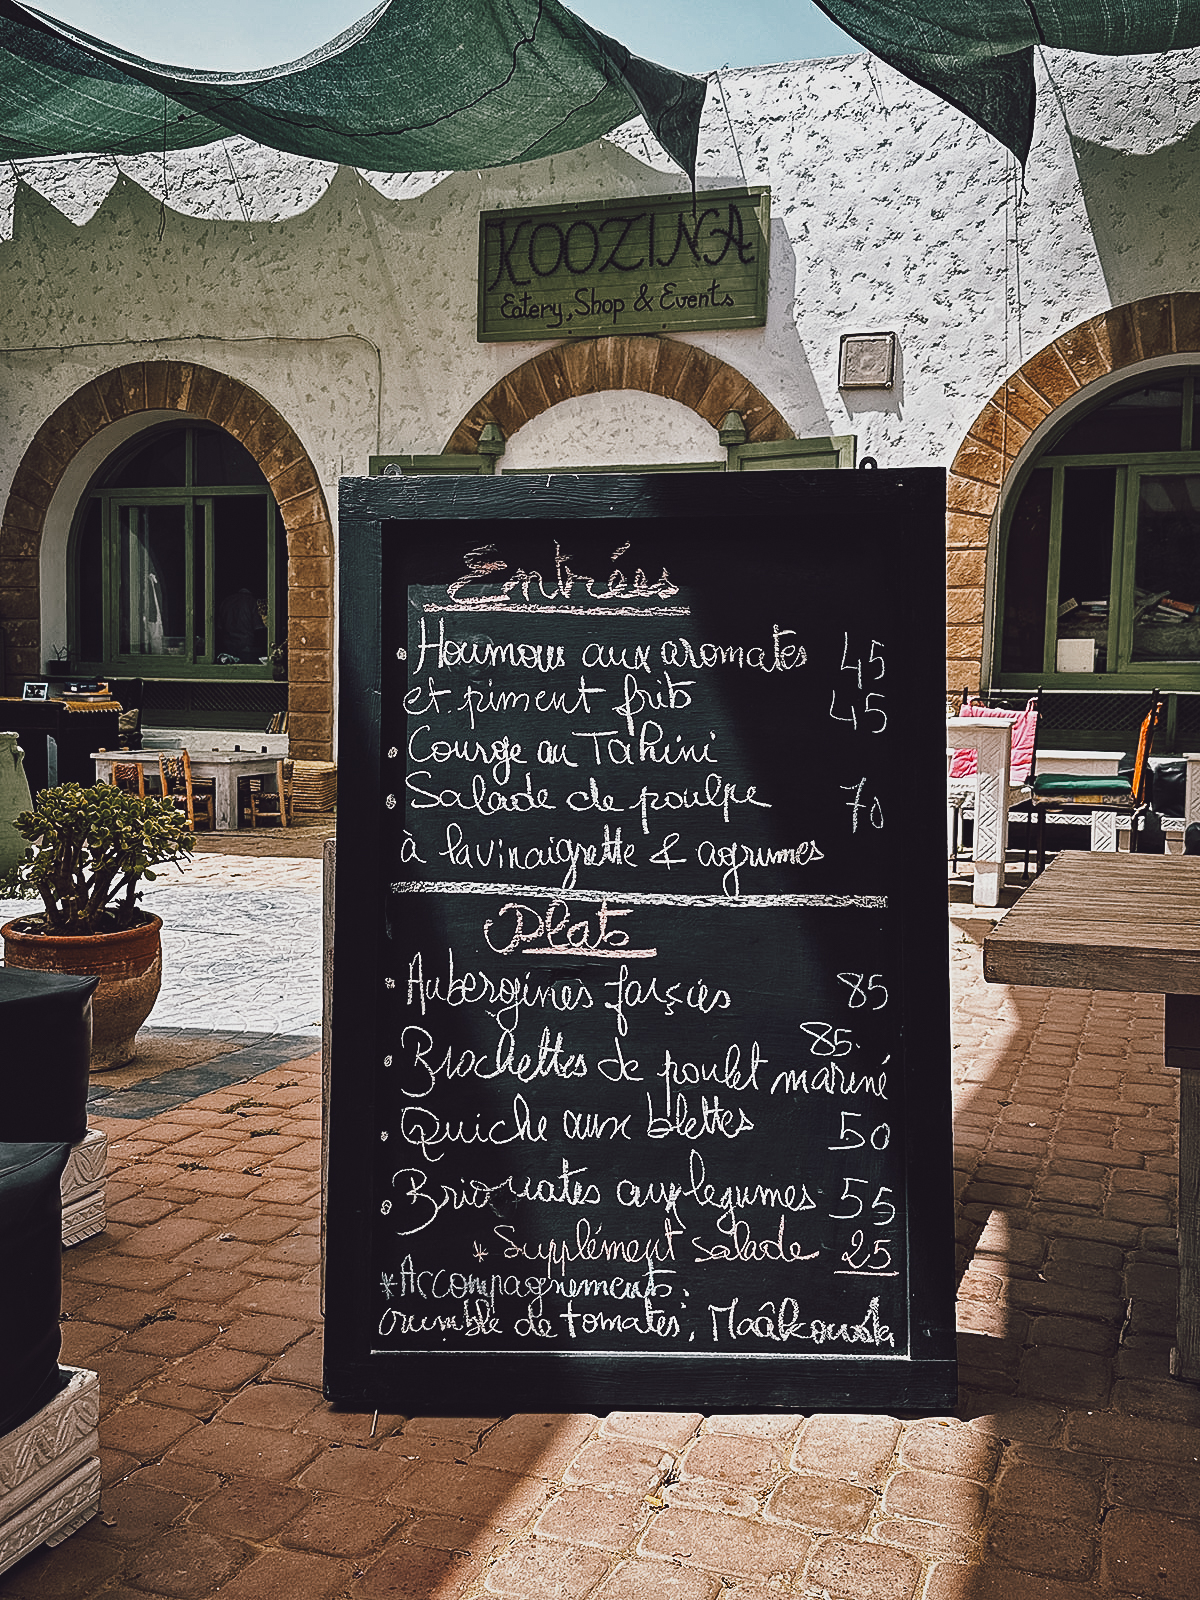 KOOZINA
Eatery, Shop & Events
Entrées
• Houmous aux aromates 45
et piment frits 45
• Courge au Tahini
• Salade de poulpe 70
à la vinaigrette & agrumes
Plats
• Aubergines farcies 85
85.
• Brochettes de poulet mariné
• Quiche aux blettes 50
• Briouates aux légumes 55
* Supplément salade 25
*Accompagnements:
crumble de tomates, Maâkouska